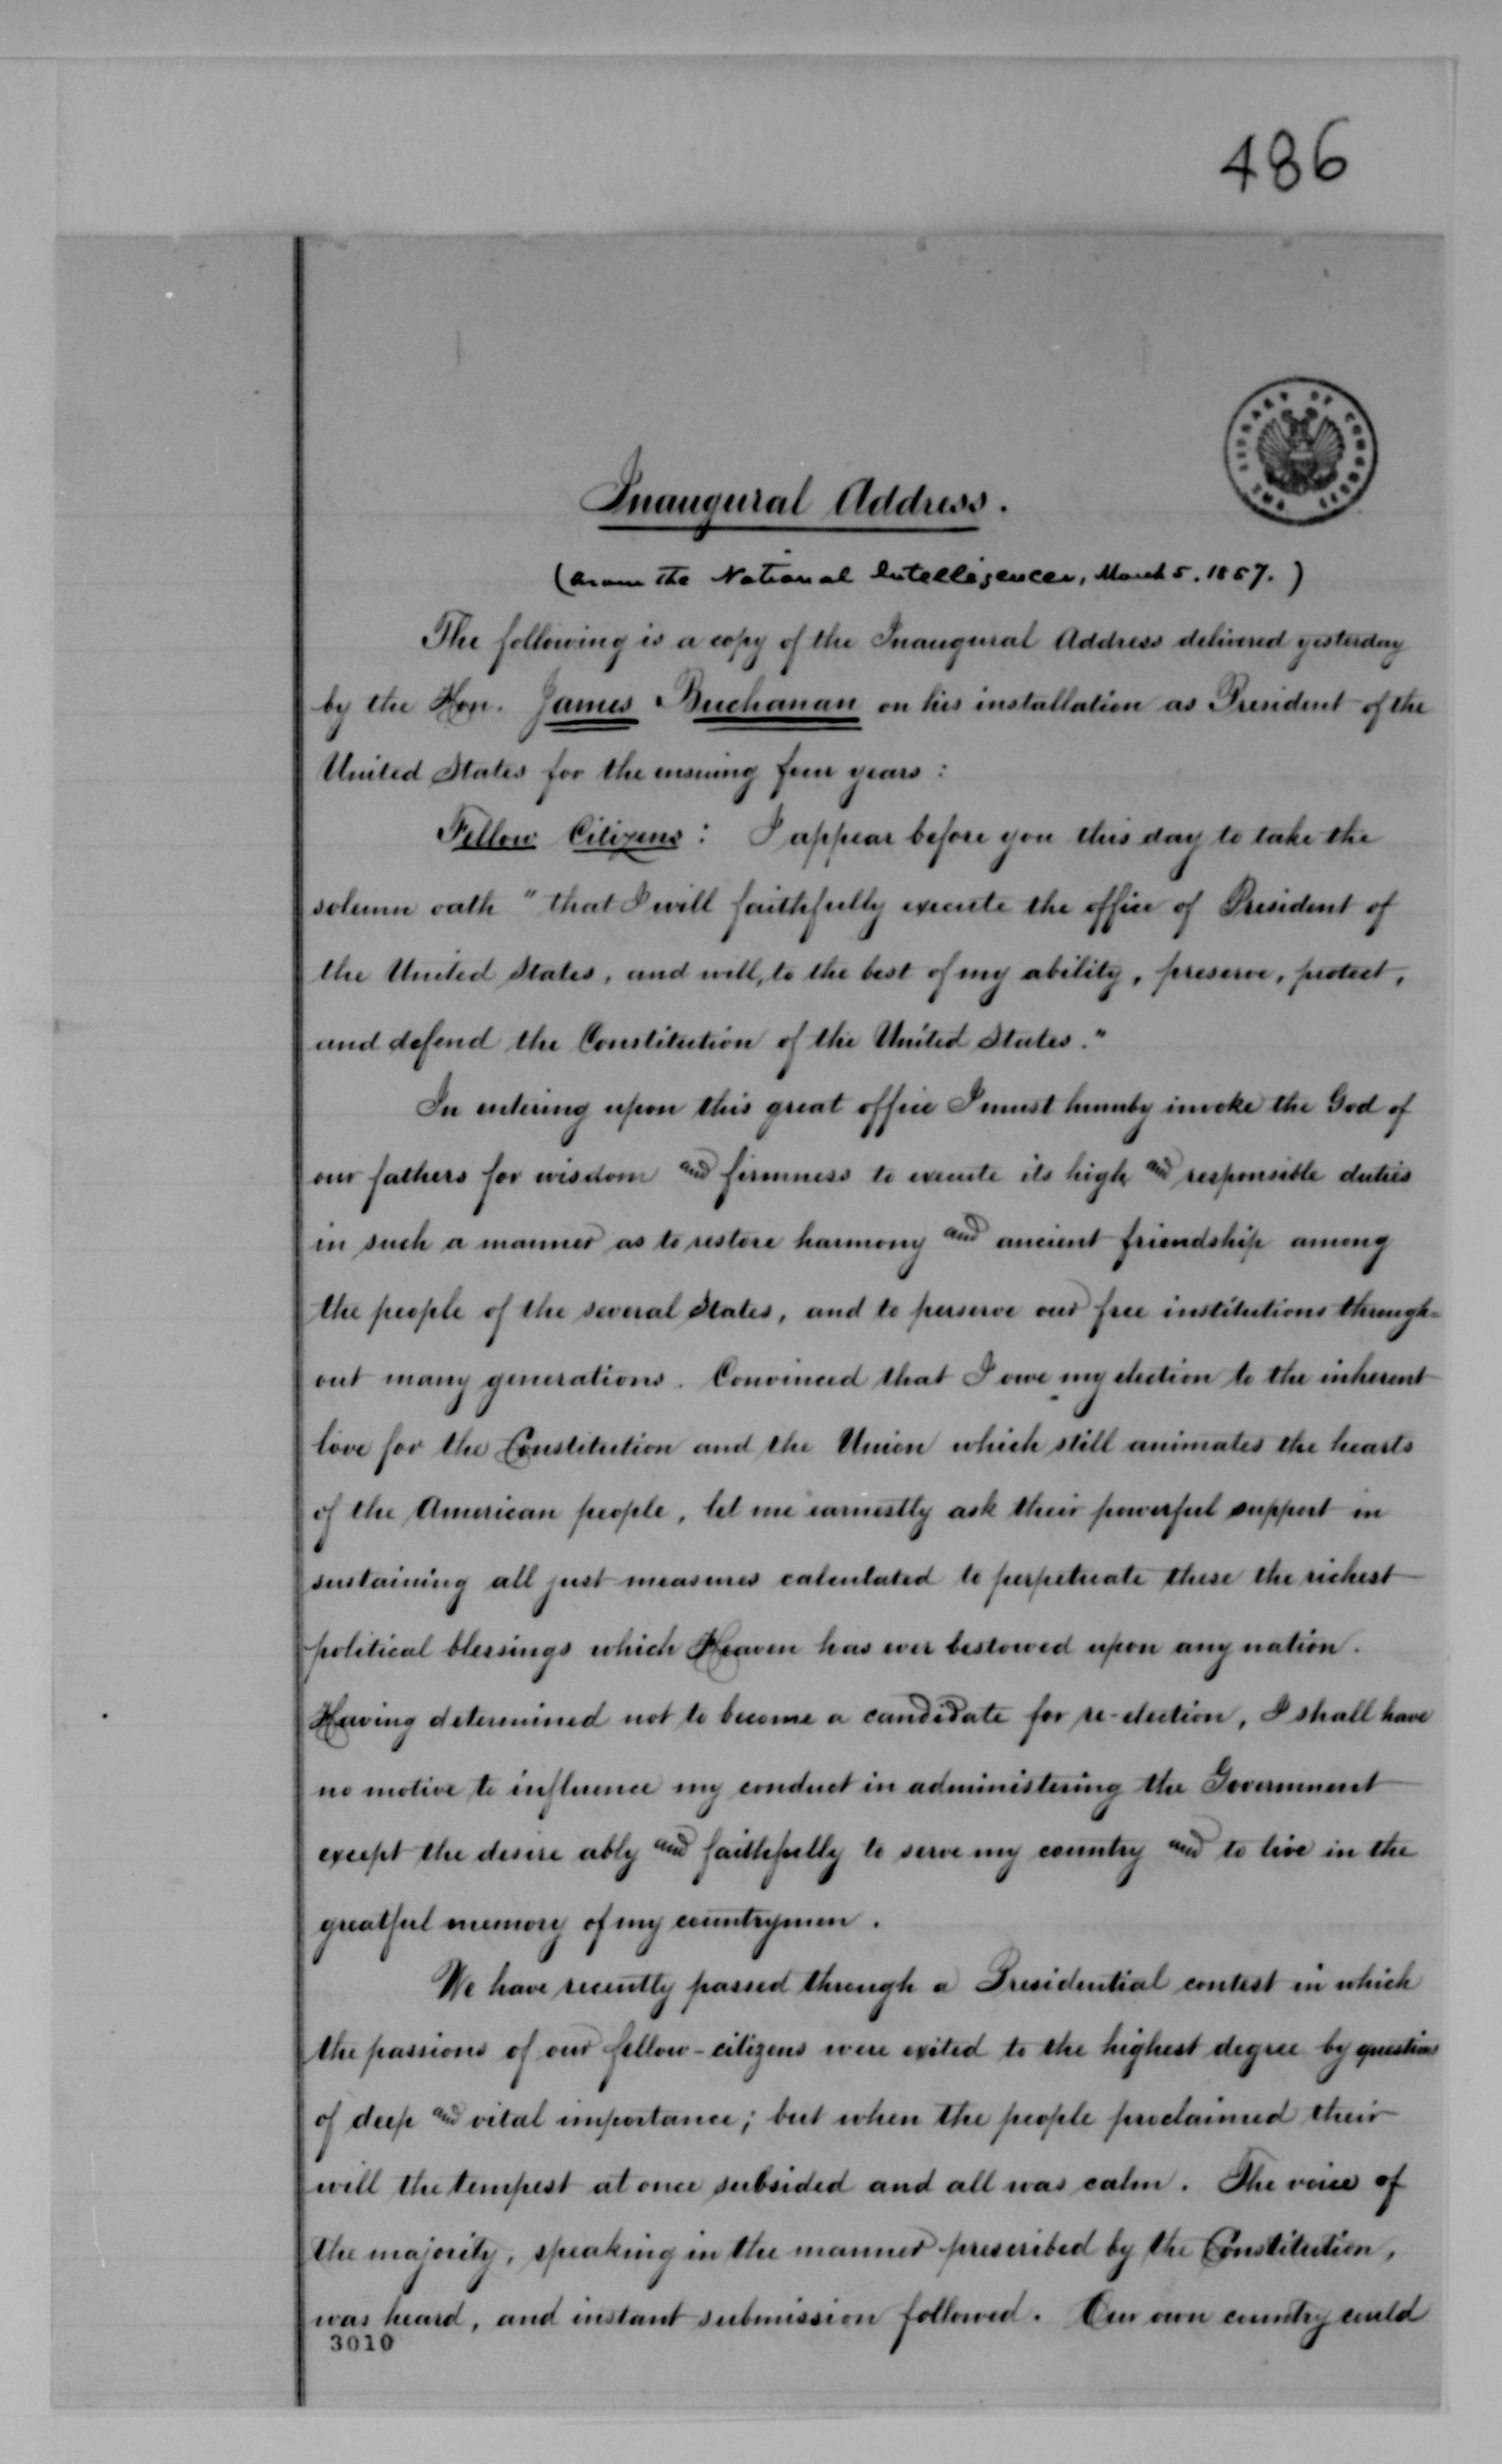 486
THE LIBRARY OF CONGRESS
Inaugural Address.
(From the National Intelligencer, March 5. 1857.)
The following is a copy of the Inaugural Address delivered yesterday
by the Hon. James Buchanan on his installation as President of the
United States for the ensuing four years:
Fellow Citizens: I appear before you this day to take the
solemn oath "that I will faithfully execute the office of President of
the United States, and will, to the best of my ability, preserve, protect,
and defend the Constitution of the United States."
In entering upon this great office I must humby invoke the God of
our fathers for wisdom and firmness to execute its high and responsible duties
in such a manner as to restore harmony and ancient friendship among
the people of the several States, and to perserve our free institutions through-
out many generations. Convinced that I owe my election to the inherent
love for the Constitution and the Union which still animates the hearts
of the American people, let me earnestly ask their powerful support in
sustaining all just measures calculated to perpetuate these the richest
political blessings which Heaven has ever bestowed upon any nation.
Having determined not to become a candidate for re-election, I shall have
no motive to influence my conduct in administering the Government
except the desire ably and faithfully to serve my country and to live in the
greatful memory of my countrymen.
We have recently passed through a Presidential contest in which
the passions of our fellow-citizens were exited to the highest degree by questions
of deep and vital importance; but when the people proclaimed their
will the tempest at once subsided and all was calm. The voice of
the majority, speaking in the manner prescribed by the Constitution,
was heard, and instant submission followed. Our own country could
3010